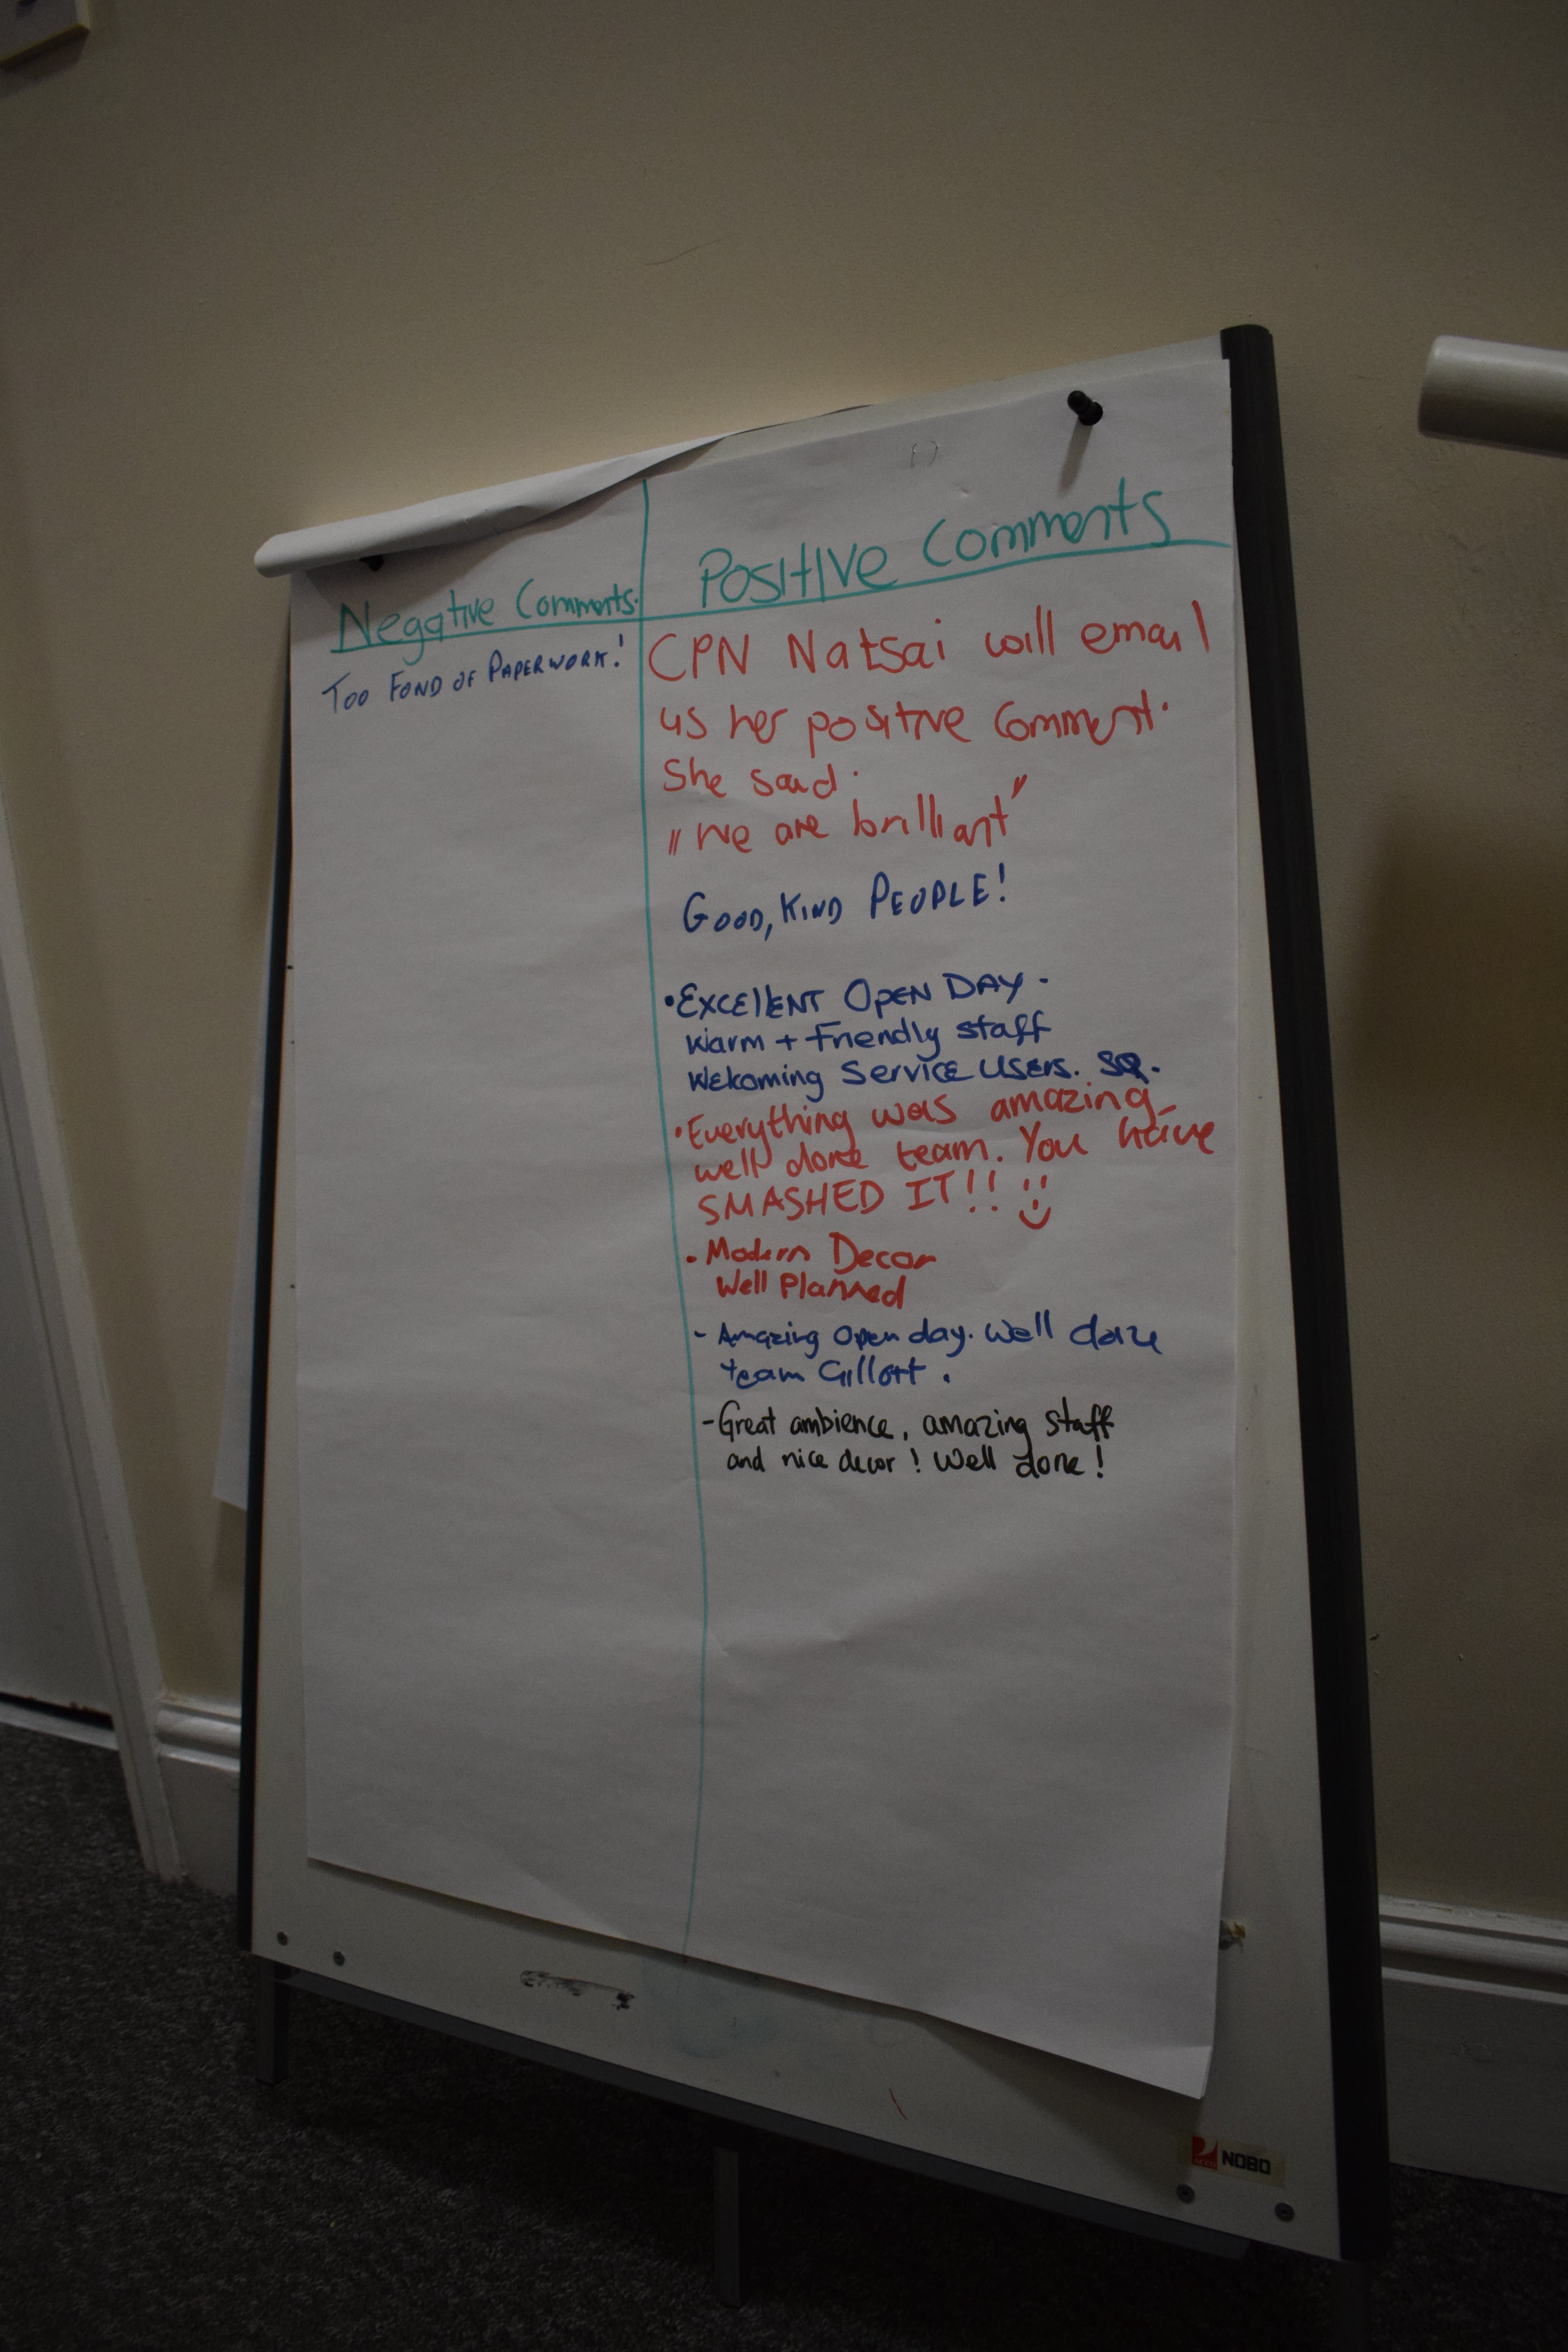 Negative Comments.
Too Fond of Paperwork!
Positive Comments
CPN Natsai will email
us her positive comment.
She said.
"We are brilliant"
Good, Kind People!
• Excellent Open Day.
Warm + Friendly staff
Welcoming Service Users. SQ.
• Everything was amazing
well done team. You have
SMASHED IT!! :)
• Modern Decor
Well Planned
- Amazing Open day. Well done
team Gillott.
- Great ambience, amazing staff
and nice decor! Well done!
NOBO